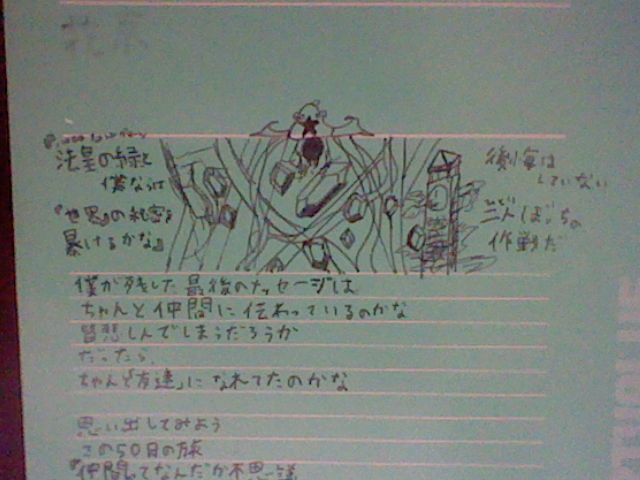 僕なら
『世界』の秘密を
暴けるかな』
後悔は
していない
二人ぼっちの
作戦だ
僕が残した最後のメッセージは
ちゃんと仲間に伝わっているのかな
皆悲しんでしまうだろうか
だったら、
ちゃんと「友達」になれてたのかな
思い出してみよう
この50日の旅
『仲間』ってなんだか不思議